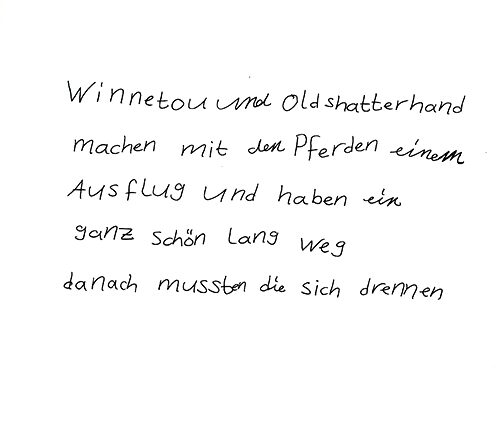 Winnetou und Oldshatterhand
machen mit den Pferden einem
Ausflug und haben ein
ganz schön lang weg
danach mussten die sich drennen